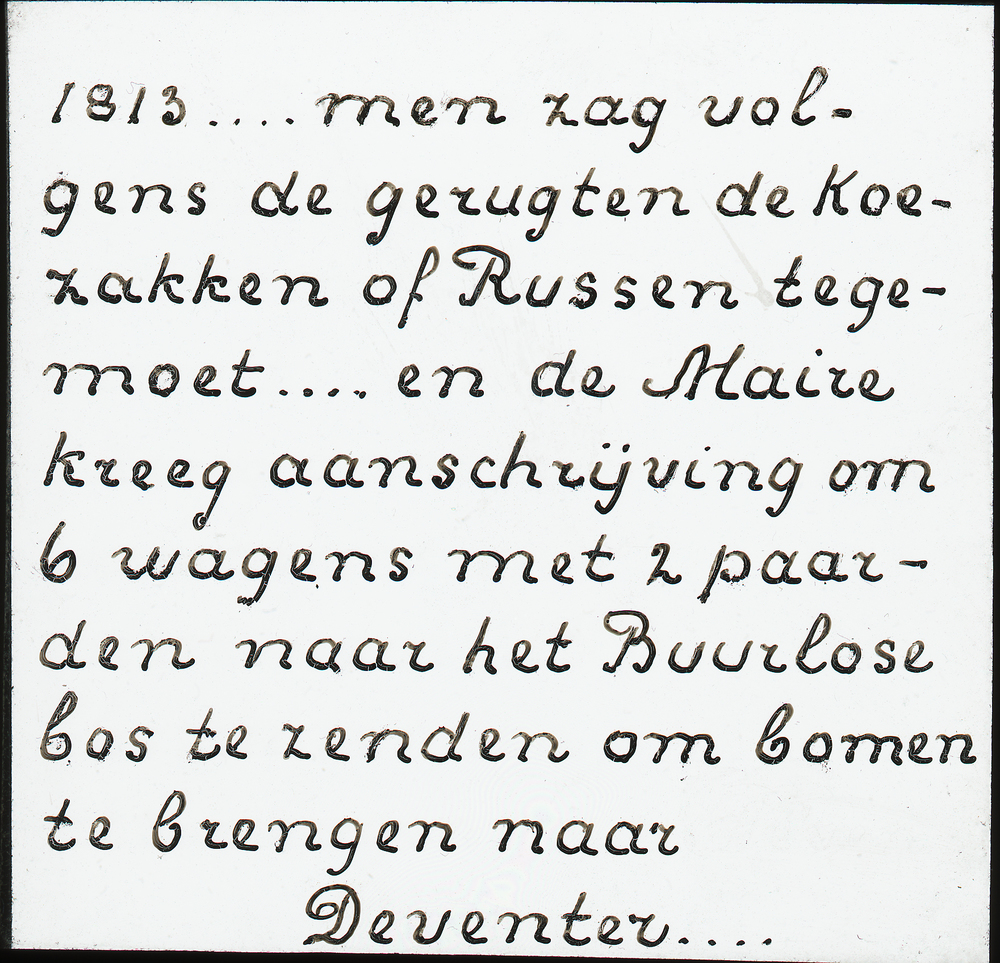 1813.... men zag vol-
gens de gerugten de Koe-
zakken of Russen tege-
moet.... en de Maire
kreeg aanschrijving om
6 wagens met 2 paar-
den naar het Buurlose
bos te zenden om bomen
te brengen naar
Deventer....